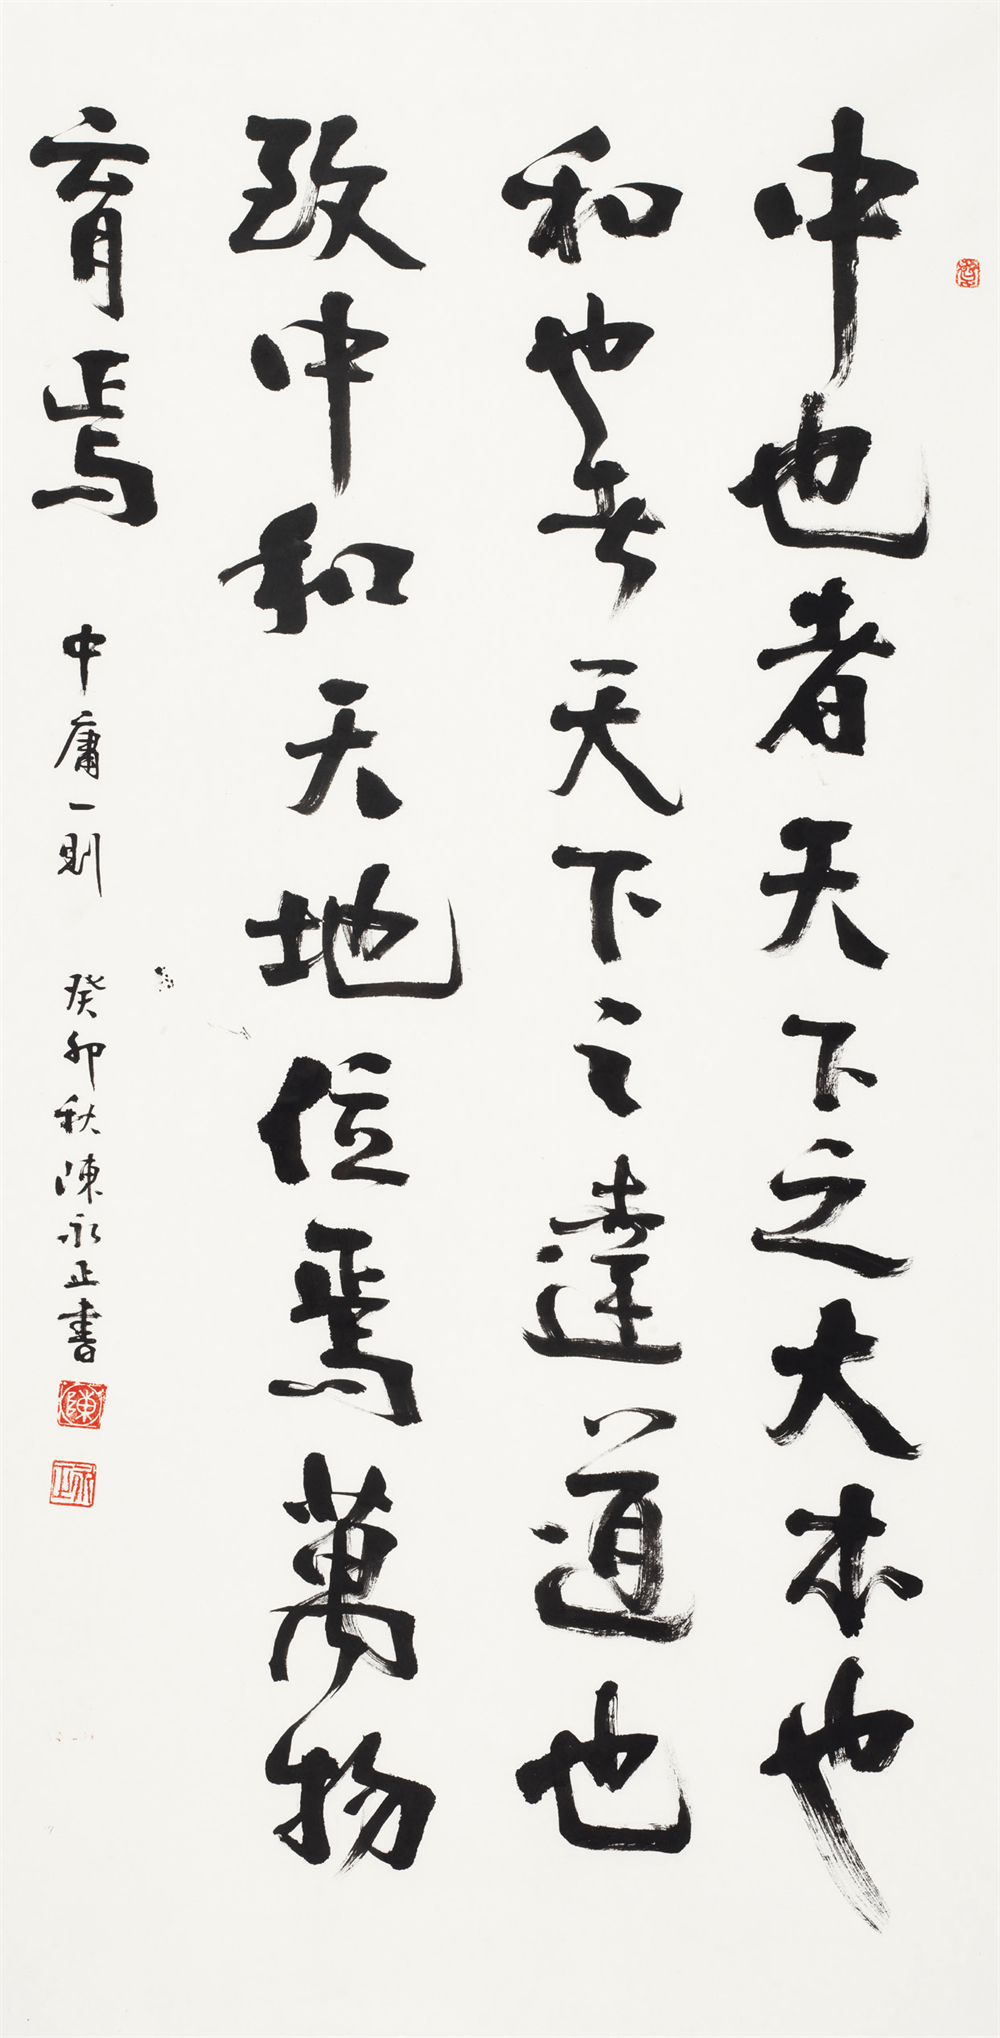 中也者天下之大本也
和也者天下之達道也
致中和天地位焉萬物
育焉
中庸一則 癸卯秋陳永正書
陳
永正